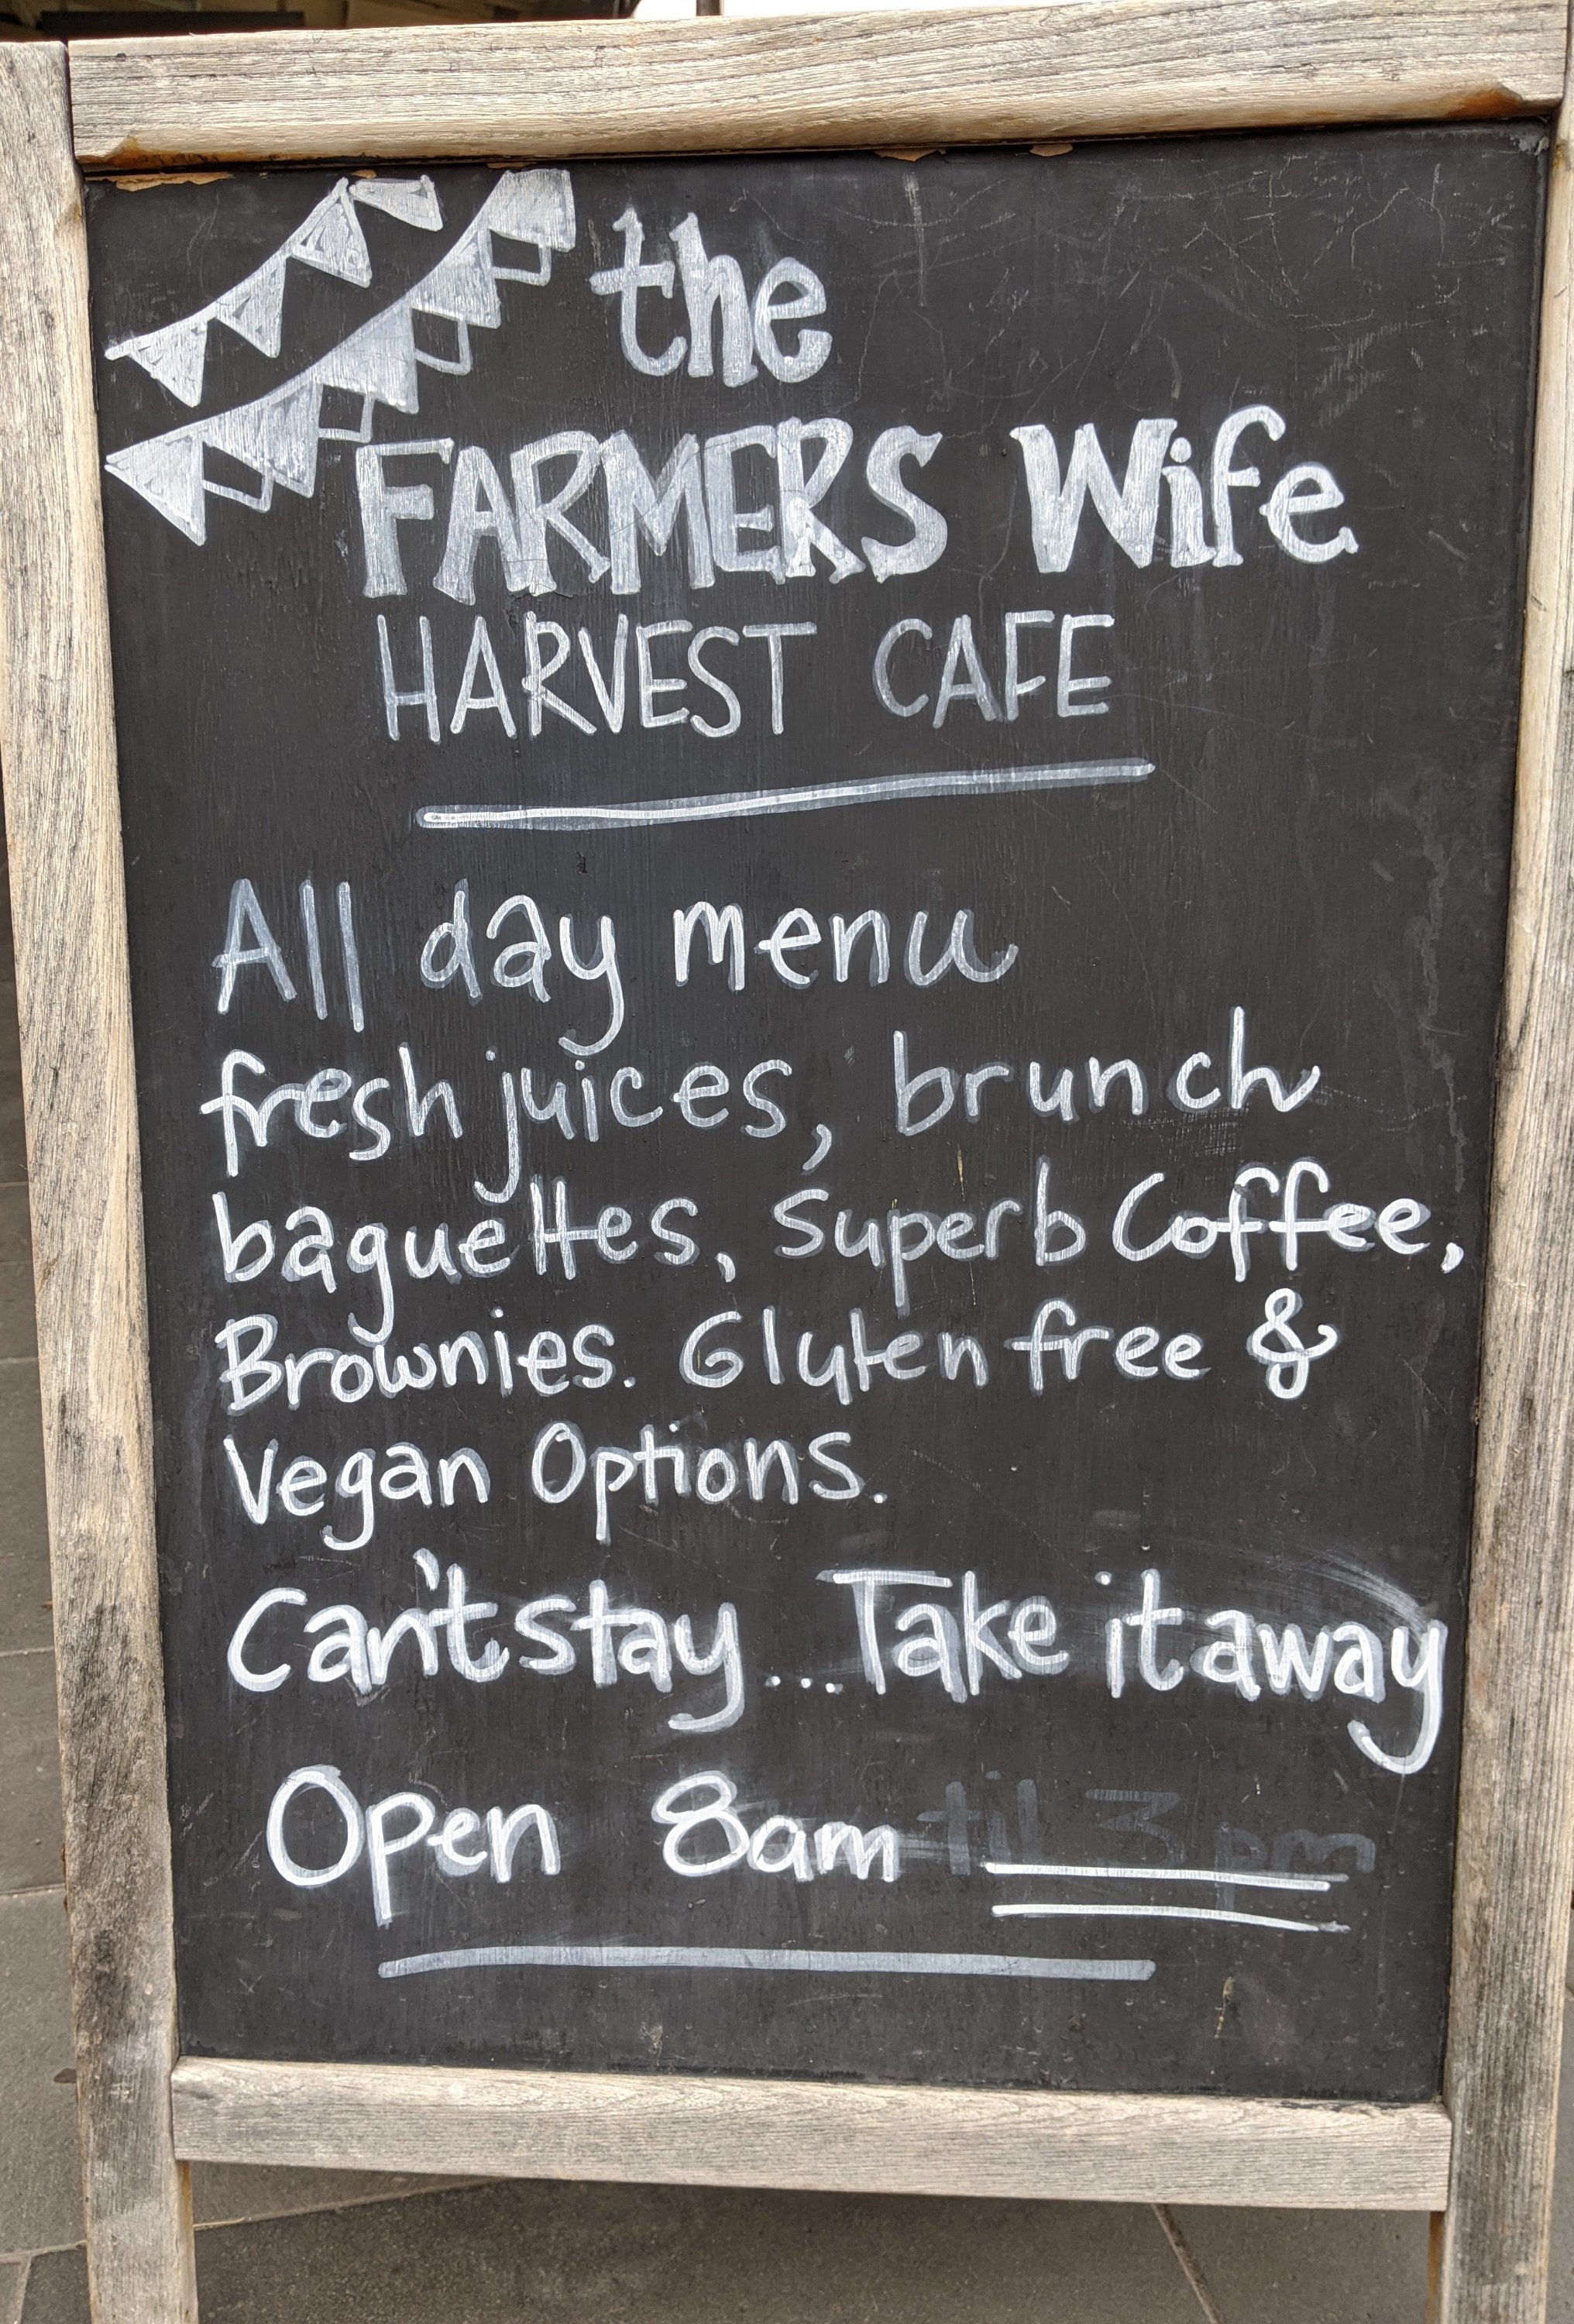 the
FARMERS Wife
HARVEST CAFE
All day menu
fresh juices, brunch
baguettes, Superb Coffee,
Brownies. Gluten free &
Vegan Options.
Can't stay ... Take it away
Open 8am til 3pm